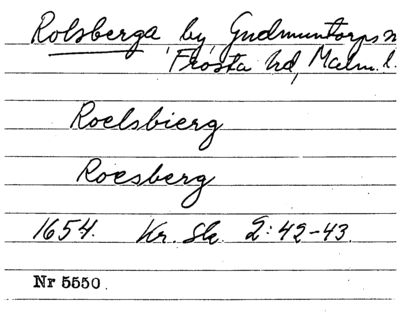 Rolsberga, by, Gudmuntorps
Frosta hd, Malm. l.
Roelsbierg
Roesberg
1654. Kr. Sk. 2:42-43.
Nr 5550.